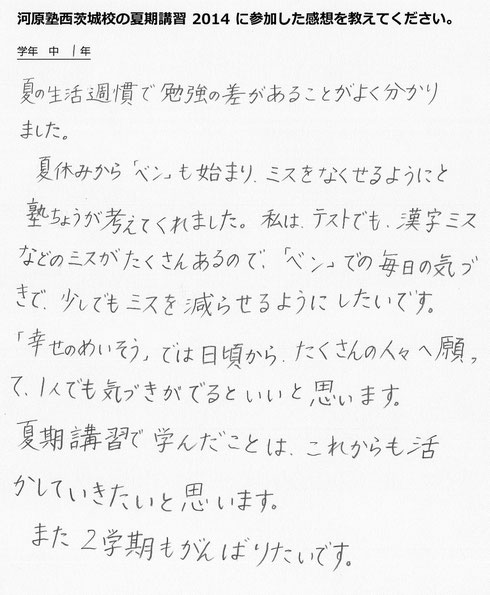 河原塾西茨城校の夏期講習 2014 に参加した感想を教えてください。
学年 中 1年
夏の生活週慣で勉強の差があることがよく分かり
ました。
夏休みから「ベン」も始まり、ミスをなくせるようにと
塾ちょうが考えてくれました。私は、テストでも、漢字ミス
などのミスがたくさんあるので、「ベン」での毎日の気づ
きで、少しでもミスを減らせるようにしたいです。
「幸せのめいそう」では日頃から、たくさんの人々へ願っ
て、1人でも気づきがでるといいと思います。
夏期講習で学んだことは、これからも活
かしていきたいと思います。
また2学期もがんばりたいです。